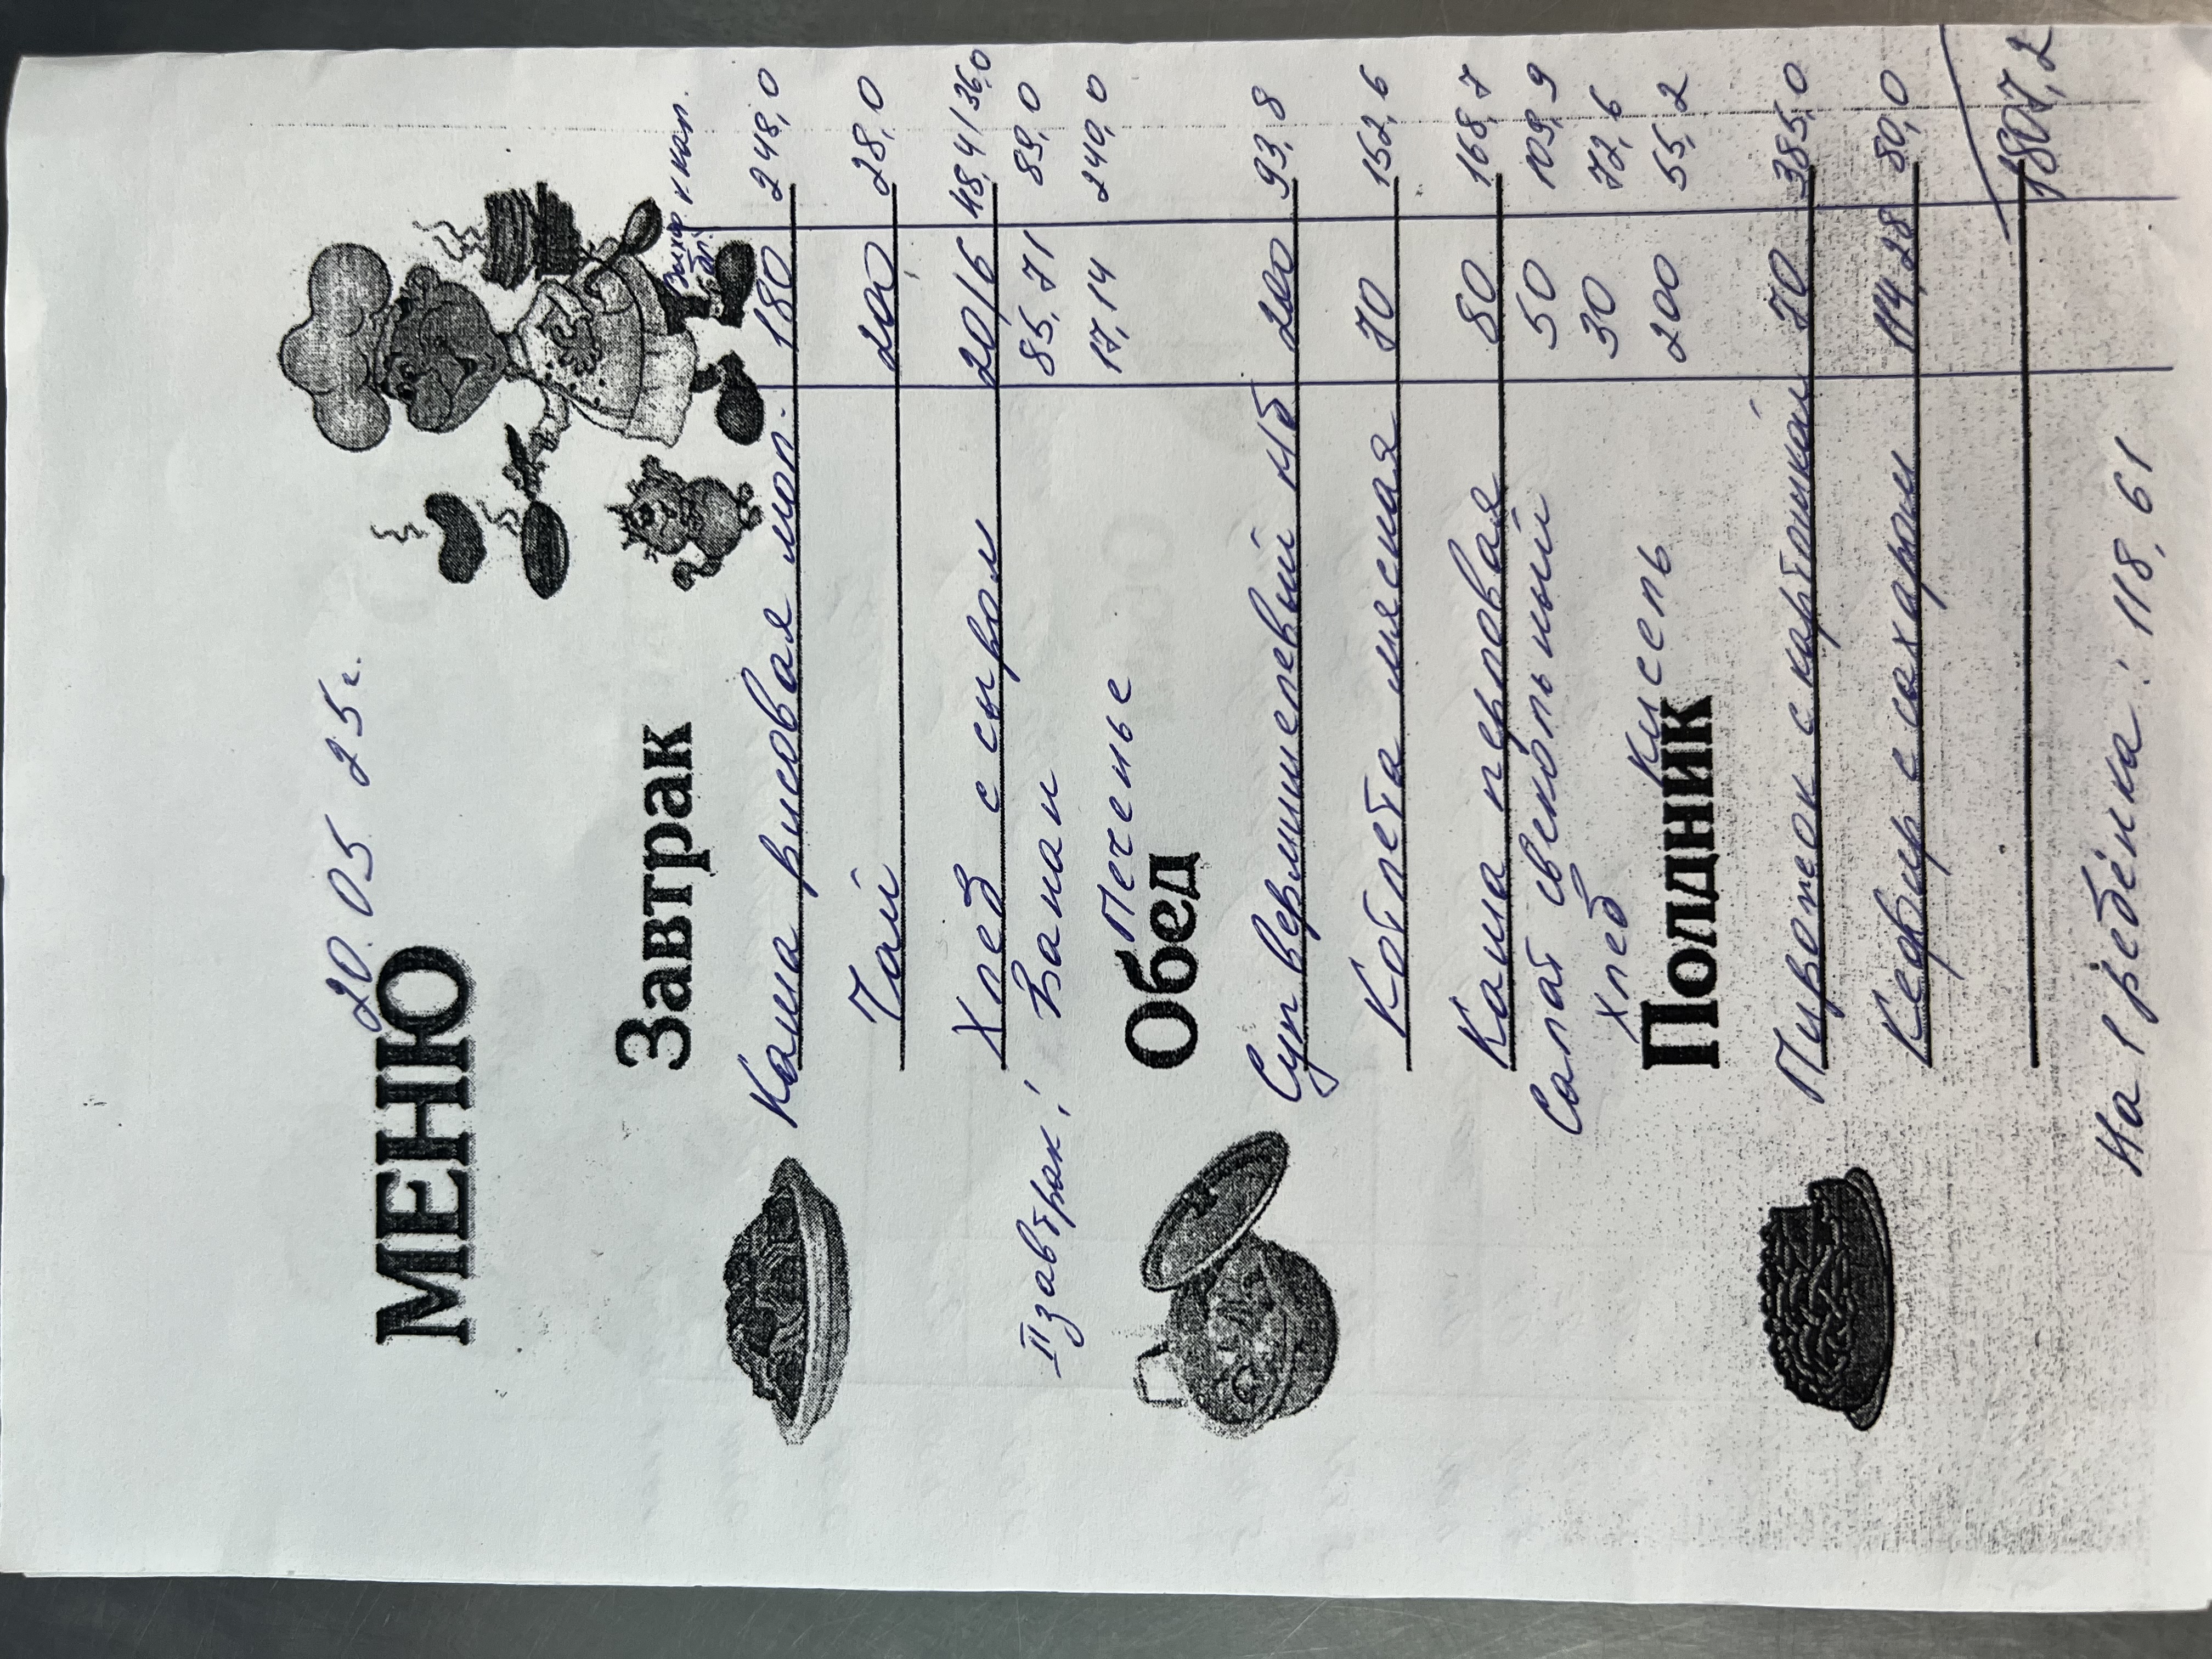 20. 05 25 г.
МЕНЮ
Завтрак
Выход бл. к кал.
Каша рисовая мол. 180 248,0
Чай 200 28,0
Хлеб с сыром 20/6 48,4/36,0
II завтрак: Банан 85,71 89,0
Печенье 17,14 240,0
Обед
Суп вермишелевый м/б 200 93,8
Котлета мясная 70 152,6
Каша перловая 80 168,7
Салат свекольный 50 109,9
Хлеб 30 72,6
Кисель 200 55,2
Полдник
Пирожок с картошкой 70 385,0
Кефир с сахаром 114,28 80,0
1807,2
На 1 ребёнка: 118,61